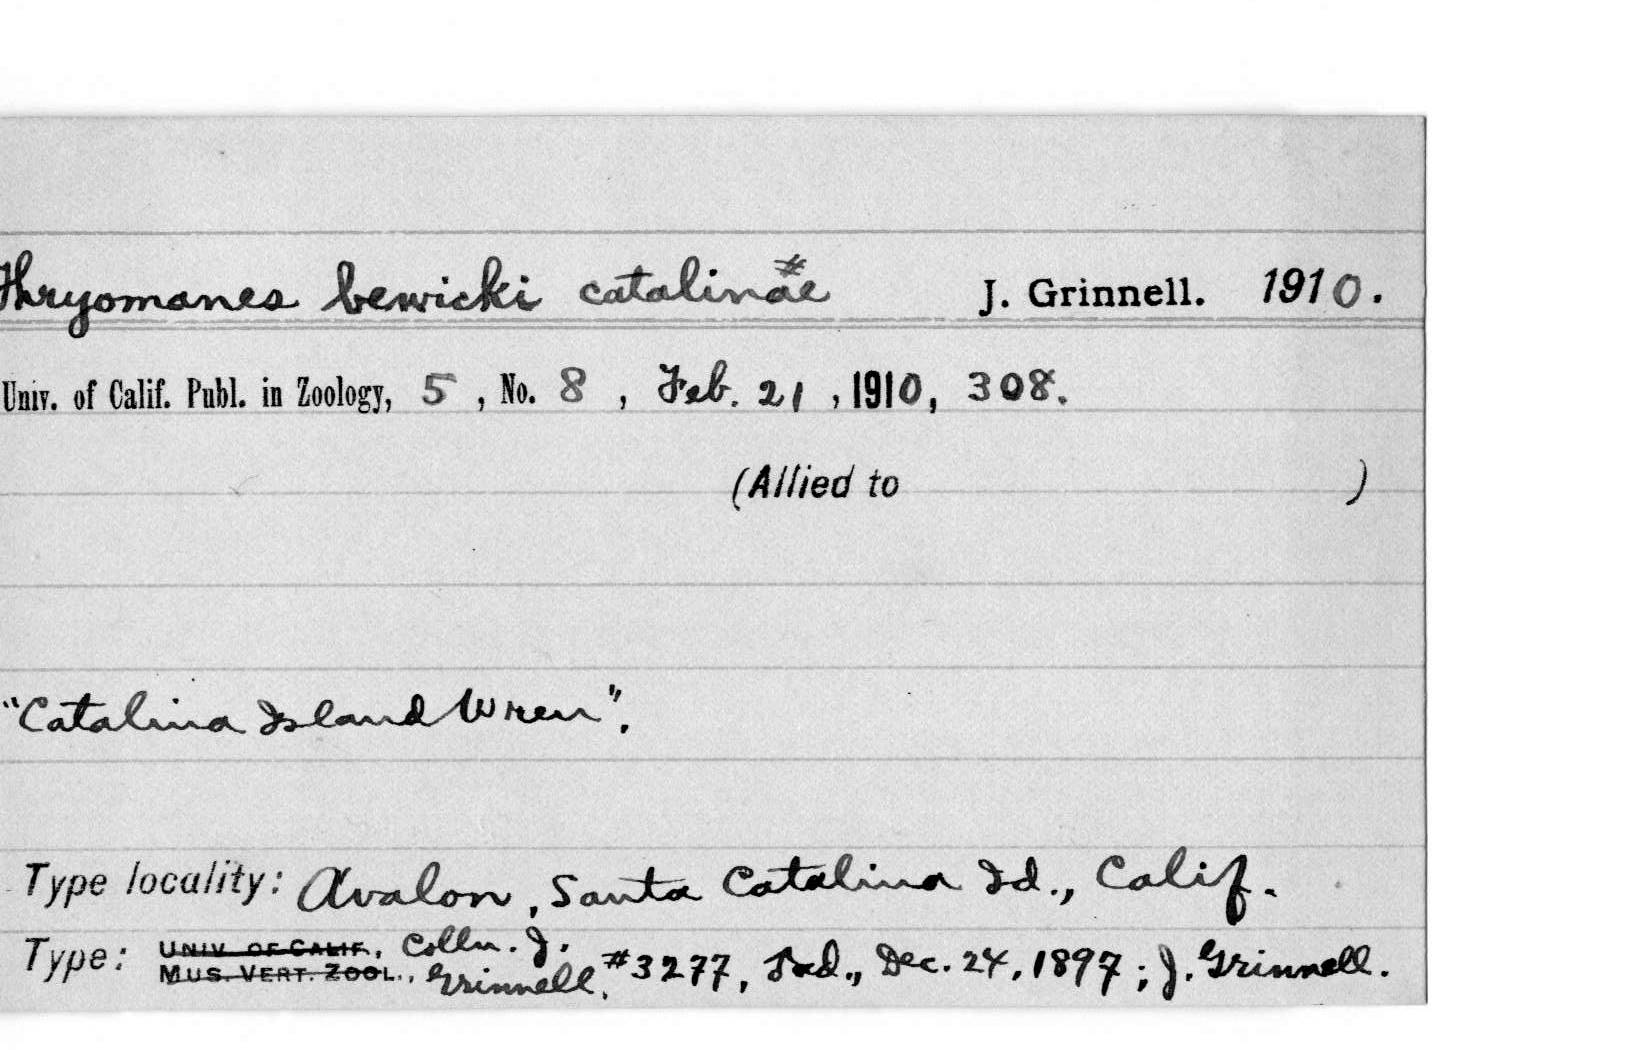 Thryomanes bewicki catalinae # J. Grinnell. 1910.
Univ. of Calif. Publ. in Zoology, 5, No. 8, Feb. 21, 1910, 308.
(Allied to )
"Catalina Island Wren".
Type locality: Avalon, Santa Catalina Id., Calif.
Type: UNIV. OF CALIF., Colln. J.
MUS. VERT. ZOOL., Grinnell, #3277, Ind., Dec. 24, 1897; J. Grinnell.